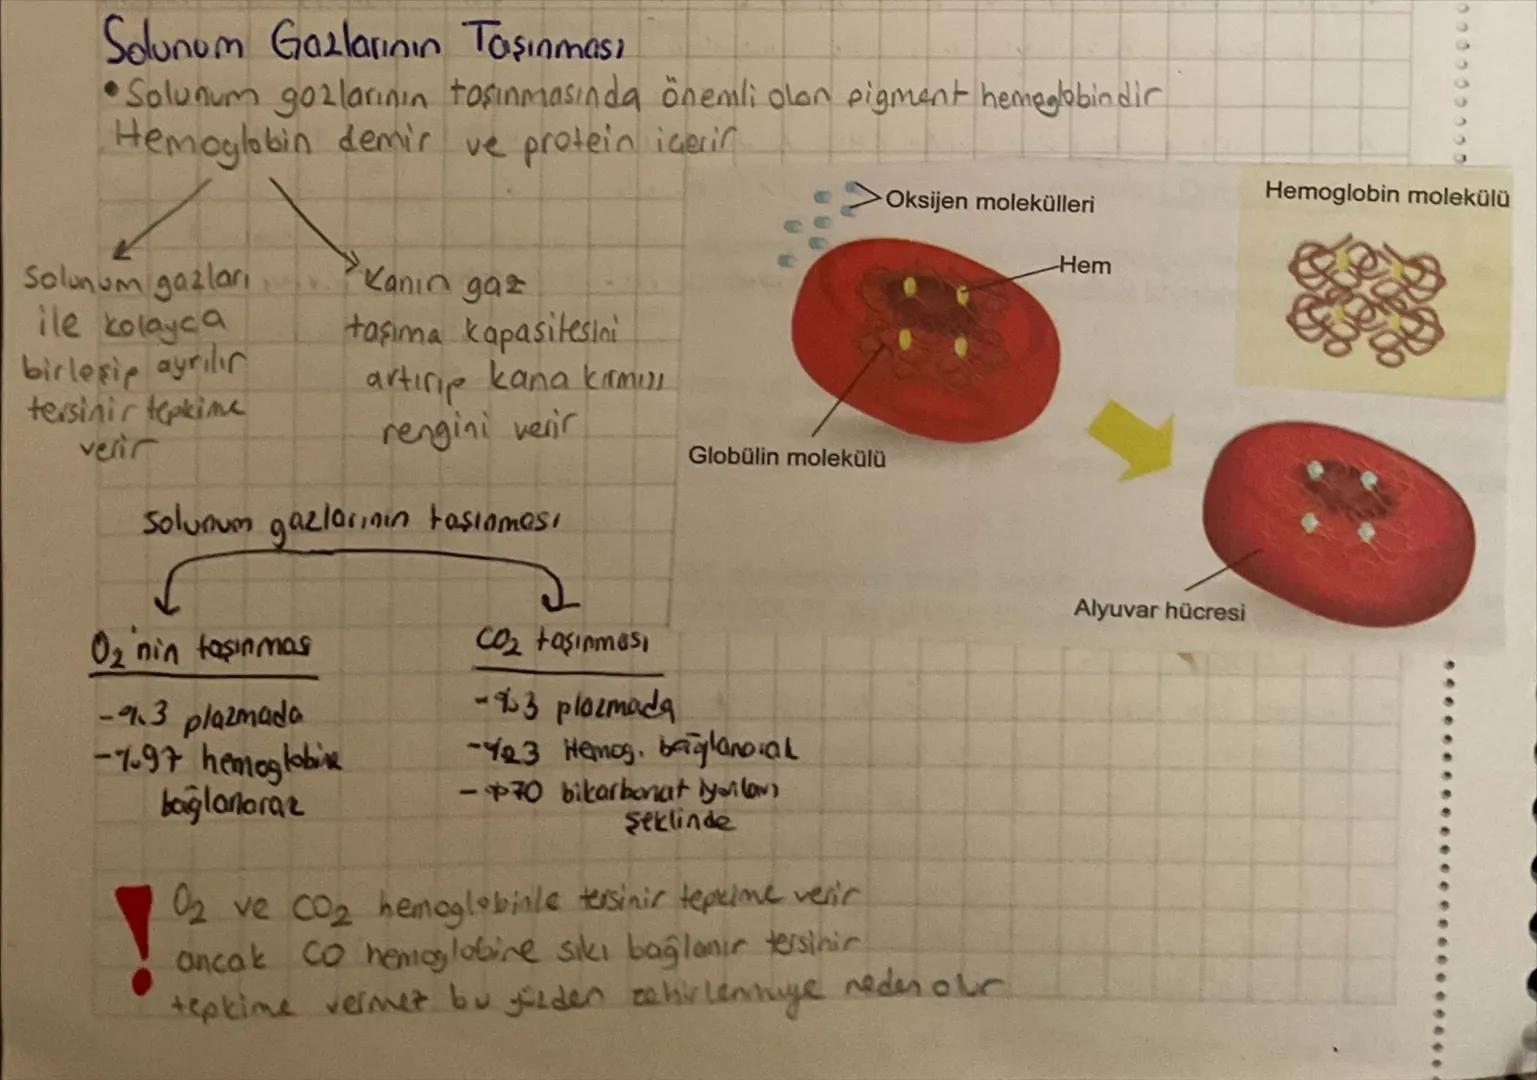 Solunum Gazlarının Taşınması
• Solunum gazlarının taşınmasında önemli olan pigment hemoglobindir
Hemoglobin demir ve protein içerir
Solunum gazları
ile kolayca
birleşip ayrılır
tersinir tepkime
verir
Kanın gaz
taşıma kapasitesini
artırıp kana kırmızı
rengini verir
Oksijen molekülleri
Hem
Globülin molekülü
Hemoglobin molekülü
Alyuvar hücresi
Solunum gazlarının taşınması
O2'nin taşınması
-%3 plazmada
-%97 hemoglobine
bağlanarak
CO2 taşınması
-%3 plazmada
-%23 Hemog. bağlanarak
-%70 bikarbonat iyonları
şeklinde
! O2 ve CO2 hemoglobinle tersinir tepkime verir
ancak CO hemoglobine sıkı bağlanır tersinir
tepkime vermez bu yüzden zehirlenmeye neden olur